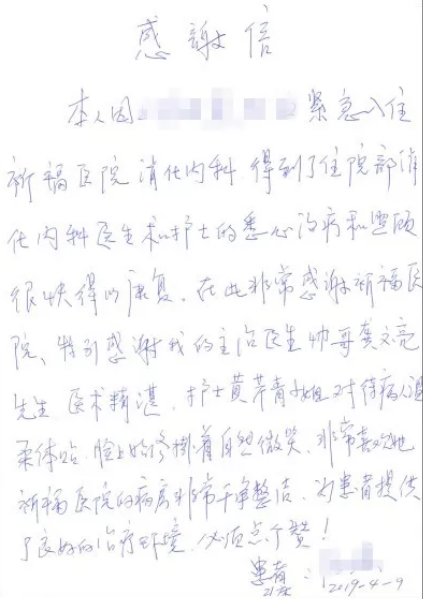 感謝信
本人因 紧急入住
祈福医院消化内科 得到了住院部消
化内科医生和护士的悉心治病和照顾
很快得以康复。在此非常感谢祈福医
院、特别感谢我的主治医生帅哥龚文亮
先生 医术精湛、护士黄芹青小姐对待病人温
柔体贴、脸上始终掛着自然微笑、非常喜欢她
祈福医院的病房非常干净整洁、为患者提供
了良好的治疗环境、必须点个赞！
患者：
2019-4-9